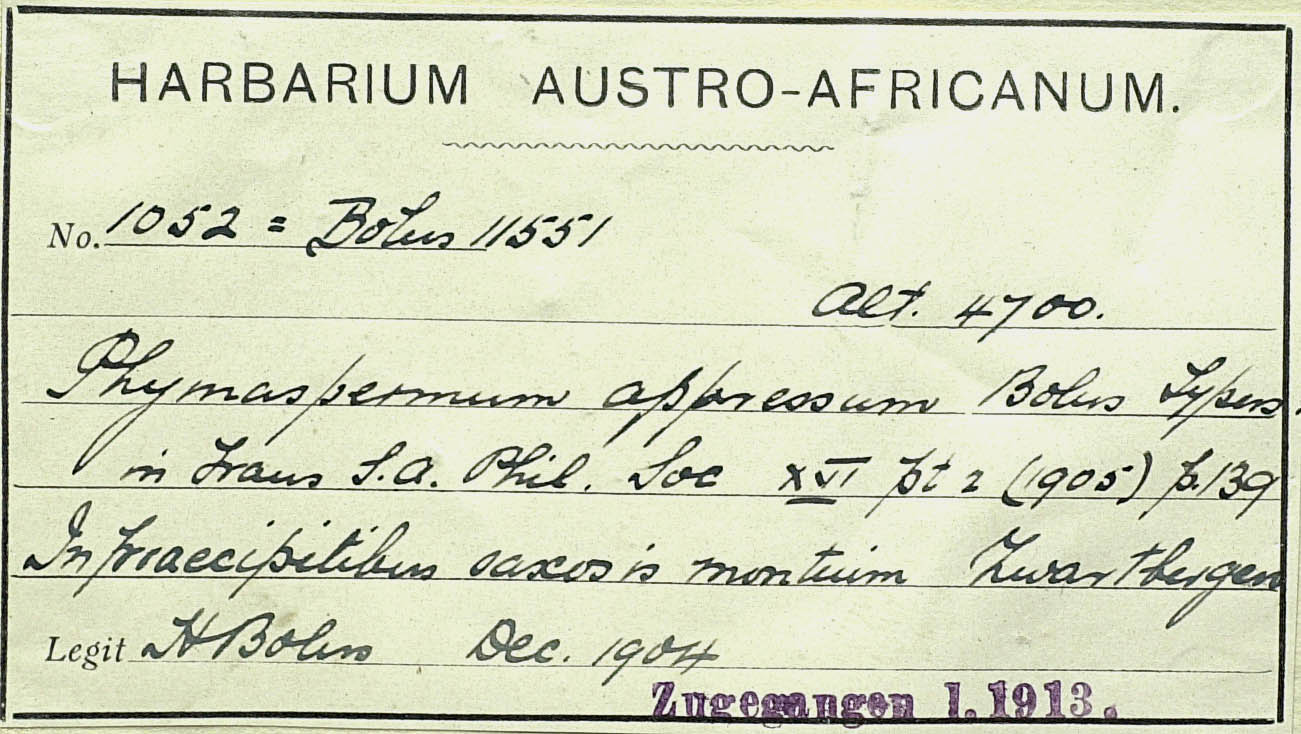 HARBARIUM AUSTRO-AFRICANUM.
No. 1052 = Bolus 11551
Alt. 4700.
Phymaspermum appressum Bolus Typus.
in Trans S.A. Phil. Soc XVI pt 2 (1905) p.139
In praecipitibus saxosis montium Zwartbergen
Legit H Bolus Dec. 1904
Zugegangen 1.1913.